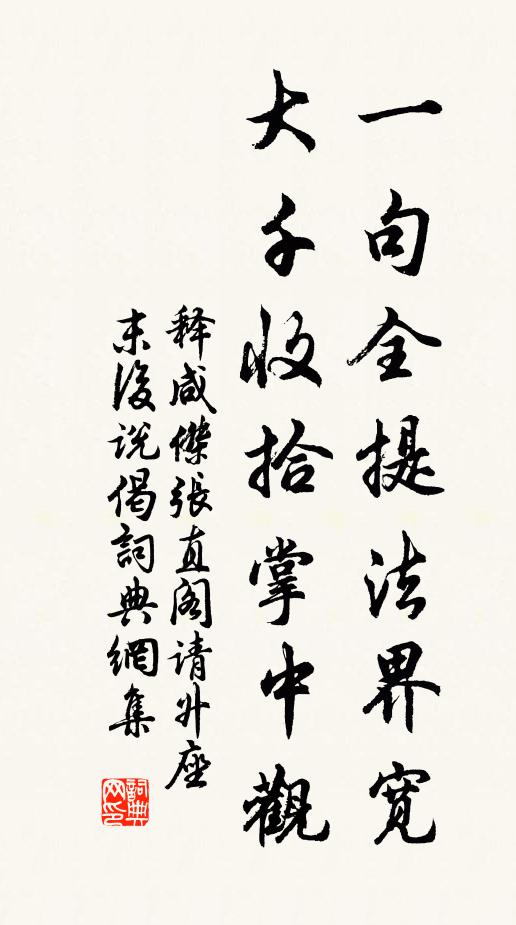 一句全提法界寬
大千收拾掌中觀
释咸傑張直阁请升座
末後说偈詞典網集
詞典网印